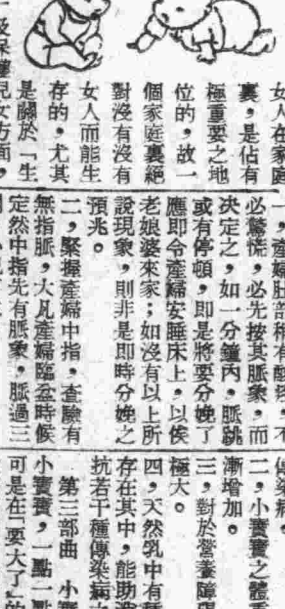 女人在家庭
裏，是佔有
極重要之地
位的，故一
個家庭裏絕
對沒有沒有
女人而能生
存的，尤其
是關於「生
一，產婦肚部稍有酸痛，不
必驚慌，必先按其脈象，而
決定之，如一分鐘內，脈跳
或有停頓，即是將要分娩了
應即令產婦安睡床上，以俟
老娘婆來家；如沒有以上所
說現象，則非是即時分娩之
預兆。
二，緊握產婦中指，查驗有
無指脈，大凡產婦臨盆時候
定然中指先有脈象，脈過三
傳染病。
二，小寶寶之體
漸增加。
三，對於營養障
極大。
四，天然乳中有
存在其中，能助
抗若干種傳染病
第三部曲　小寶
小寶寶，一點一
可是在「要大了」的